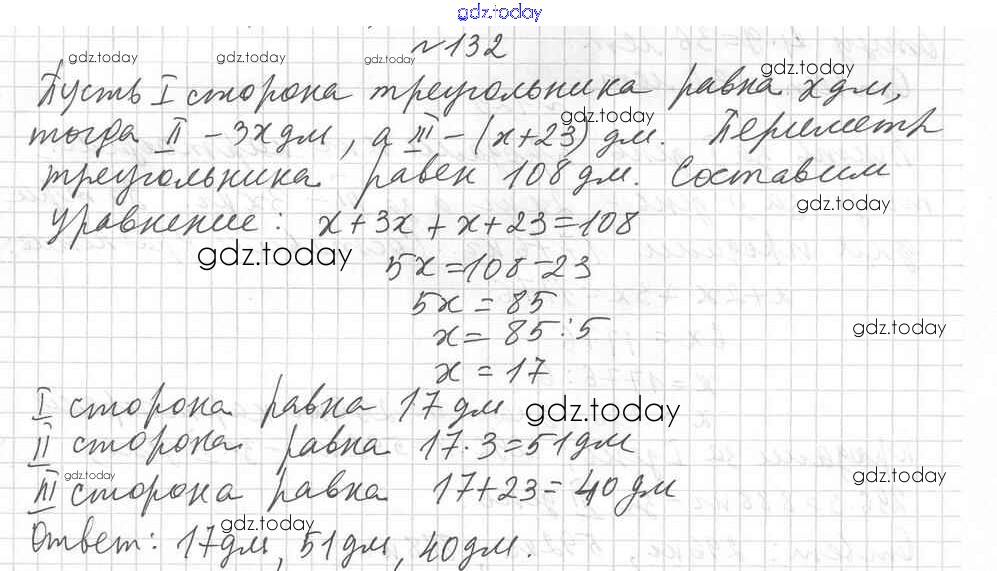 gdz.today
№132
gdz.today gdz.today gdz.today gdz.today
Пусть I сторона треугольника равна x дм,
gdz.today
тогда II - 3x дм, а III - (x+23) дм. Периметр
треугольника равен 108 дм. Составим
gdz.today
уравнение: x+3x+x+23=108
gdz.today
5x=108-23
5x=85
x=85:5
gdz.today
x=17
I сторона равна 17 дм
gdz.today
II сторона равна 17·3=51 дм
gdz.today gdz.today
III сторона равна 17+23=40 дм
gdz.today
Ответ: 17 дм, 51 дм, 40 дм.